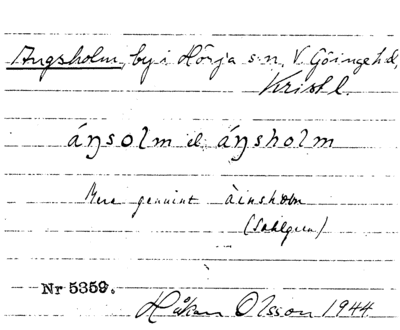 Angsholm, by i Hörja sn, V. Göinge hd,
Kristl.
áŋsolm el. áŋsholm
Mera genuint àinsholm
(Sahlgren)
Nr 5359.
Håkan Olsson 1944